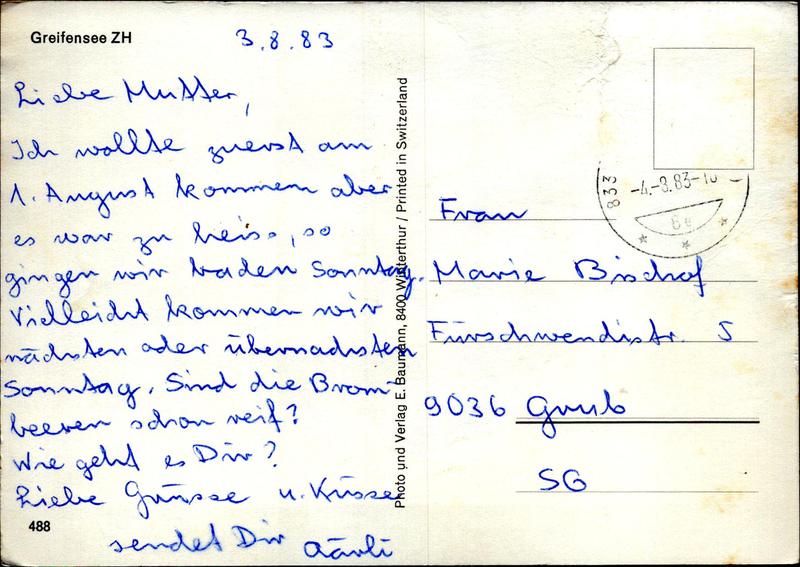 Greifensee ZH
3.8.83
Liebe Mutter,
Ich wollte zuerst am
1. August kommen aber
es war zu heiss, so
gingen wir baden Sonntag.
Vielleicht kommen wir
nächsten oder übernachsten
Sonntag. Sind die Brom-
beeren schon reif?
Wie geht es Dir?
Liebe Grüsse u. Küsse
sendet Dir
488
Photo und Verlag E. Baumann, 8400 Winterthur / Printed in Switzerland
833
-4.-8.83-
Frau
Marie Bischof
Fürschwendistr. 5
9036 Grub
SG